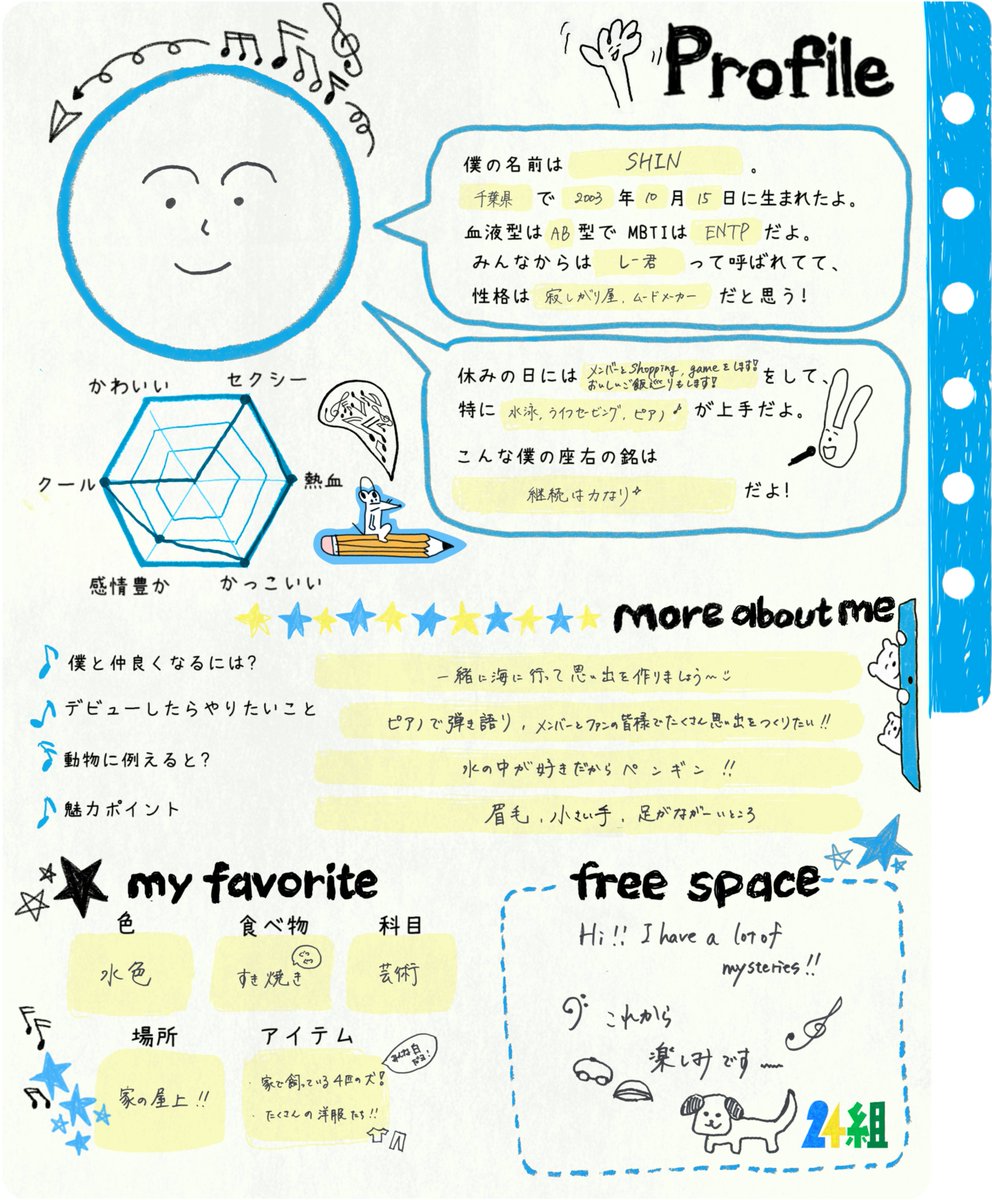 Profile
僕の名前は SHIN 。
千葉県 で 2003 年 10 月 15 日に生まれたよ。
血液型は AB 型で MBTIは ENTP だよ。
みんなからは しー君 って呼ばれてて、
性格は 寂しがり屋、ムードメーカー だと思う!
休みの日には メンバーとshopping, gameをします! おいしいご飯巡りもします! をして、
特に 水泳、ライフセービング、ピアノ♪ が上手だよ。
こんな僕の座右の銘は
継続は力なり だよ!
かわいい
セクシー
クール
熱血
感情豊か
かっこいい
more about me
僕と仲良くなるには?
一緒に海に行って思い出を作りましょう〜
デビューしたらやりたいこと
ピアノで弾き語り、メンバーとファンの皆様でたくさん思い出をつくりたい!!
動物に例えると?
水の中が好きだからペンギン!!
魅力ポイント
眉毛、小さい手、足がながーいところ
my favorite
色
食べ物
科目
水色
すき焼き
芸術
場所
アイテム
家の屋上!!
・家で飼っている4匹の犬!
・たくさんの洋服たち!!
みんな白だよ!
free space
Hi!! I have a lot of
mysteries!!
これから
楽しみです〜
24組